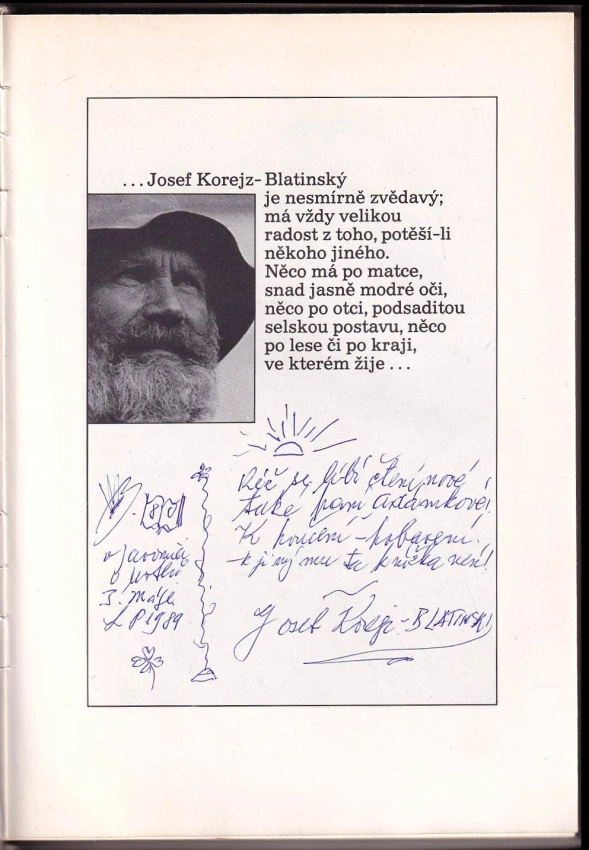 ...Josef Korejz-Blatinský
je nesmírně zvědavý;
má vždy velikou
radost z toho, potěší-li
někoho jiného.
Něco má po matce,
snad jasně modré oči,
něco po otci, podsaditou
selskou postavu, něco
po lese či po kraji,
ve kterém žije...
Kéž se líbí čtení nové
také paní Adamkové!
K poučení - pobavení!
- k jinýmu ta knížka není!
3. máje
L P 1989
Josef Korejz-BLATINSKÝ